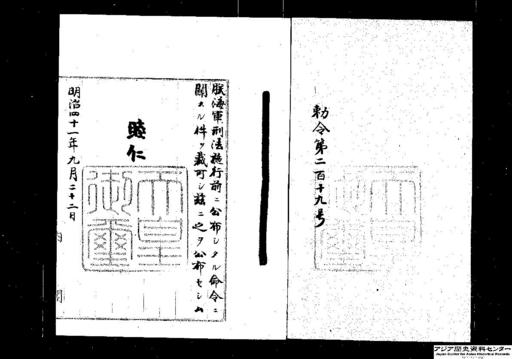 勅令第二百十九号
朕海軍刑法施行前ニ公布シタル命令ニ
關スル件ヲ裁可シ茲ニ之ヲ公布セシム
睦仁
天皇
御璽
明治四十一年九月二十二日
内閣
アジア歴史資料センター
Japan Center for Asian Historical Records